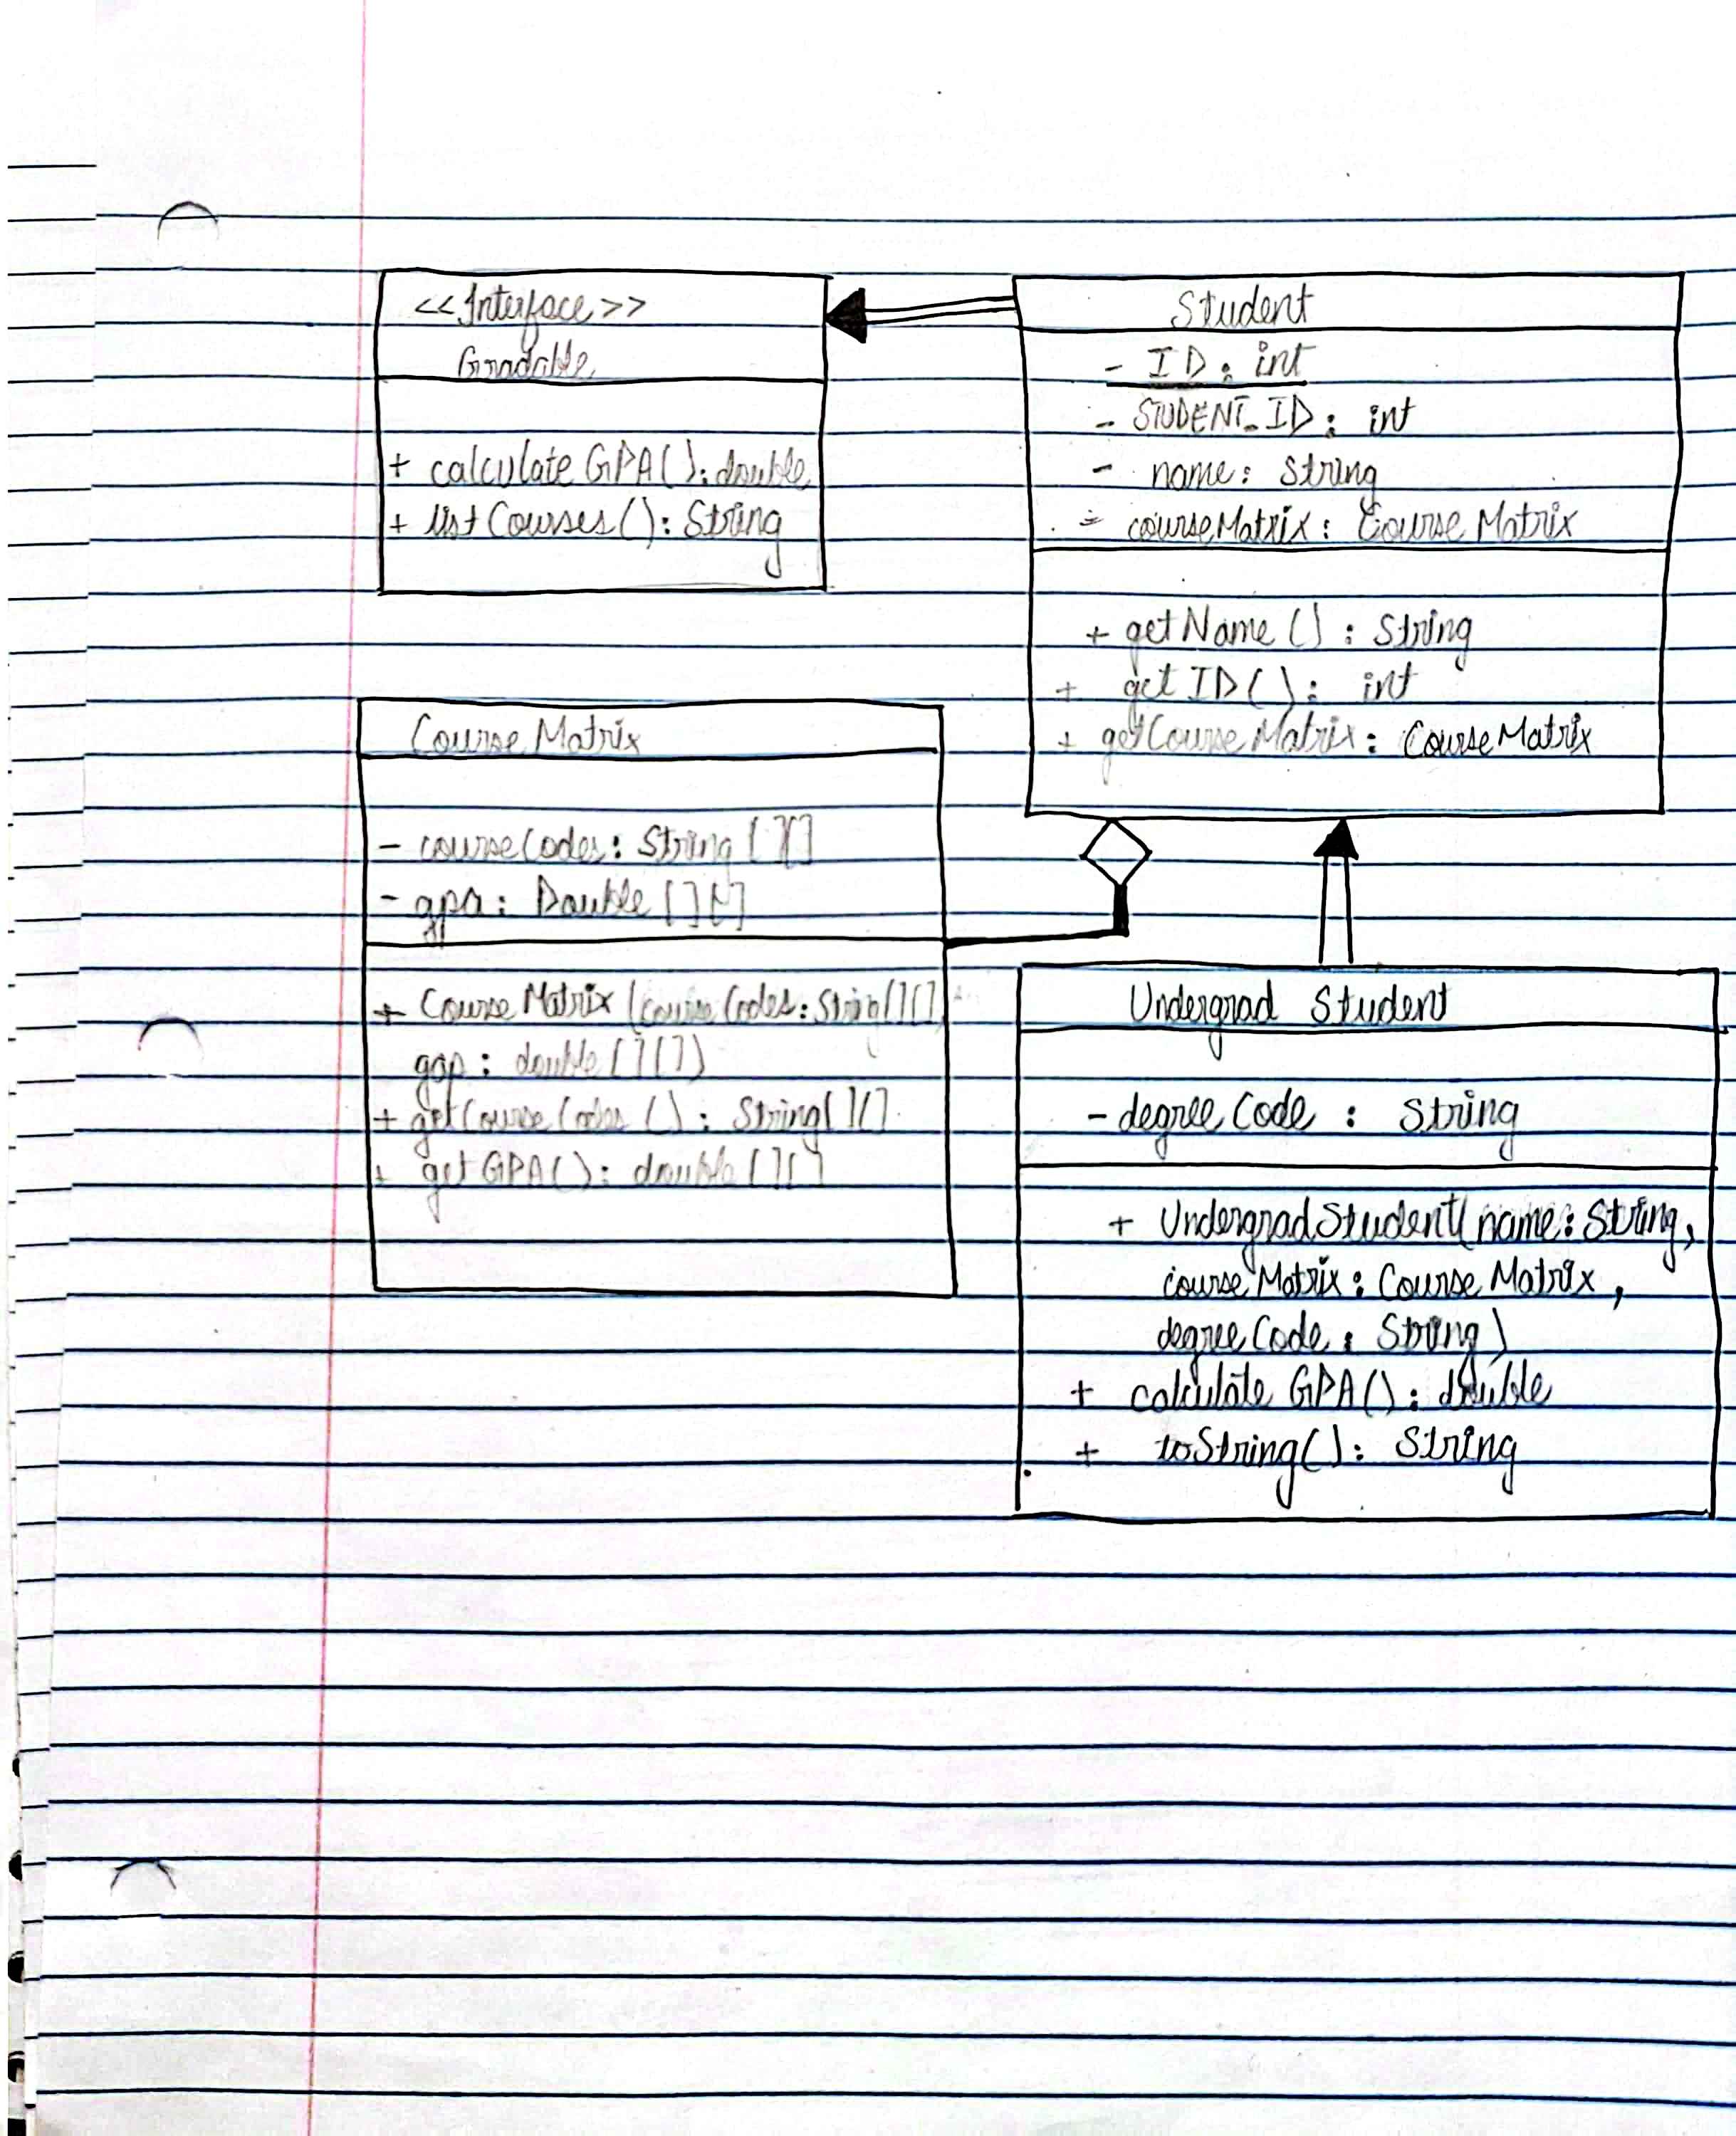 <<Interface>>
Gradable
+ calculateGPA(): double
+ listCourses(): String
Student
- ID: int
- STUDENT_ID: int
- name: String
- courseMatrix: CourseMatrix
+ getName(): String
+ getID(): int
+ getCourseMatrix: CourseMatrix
Course Matrix
- courseCodes: String[][]
- gpa: Double[][]
+ CourseMatrix(courseCodes: String[][]
gap: double[][])
+ getCourseCodes(): String[][]
+ getGPA(): double[][]
Undergrad Student
- degreeCode: String
+ UndergradStudent(name: String,
courseMatrix: CourseMatrix,
degreeCode: String)
+ calculateGPA(): double
+ toString(): String